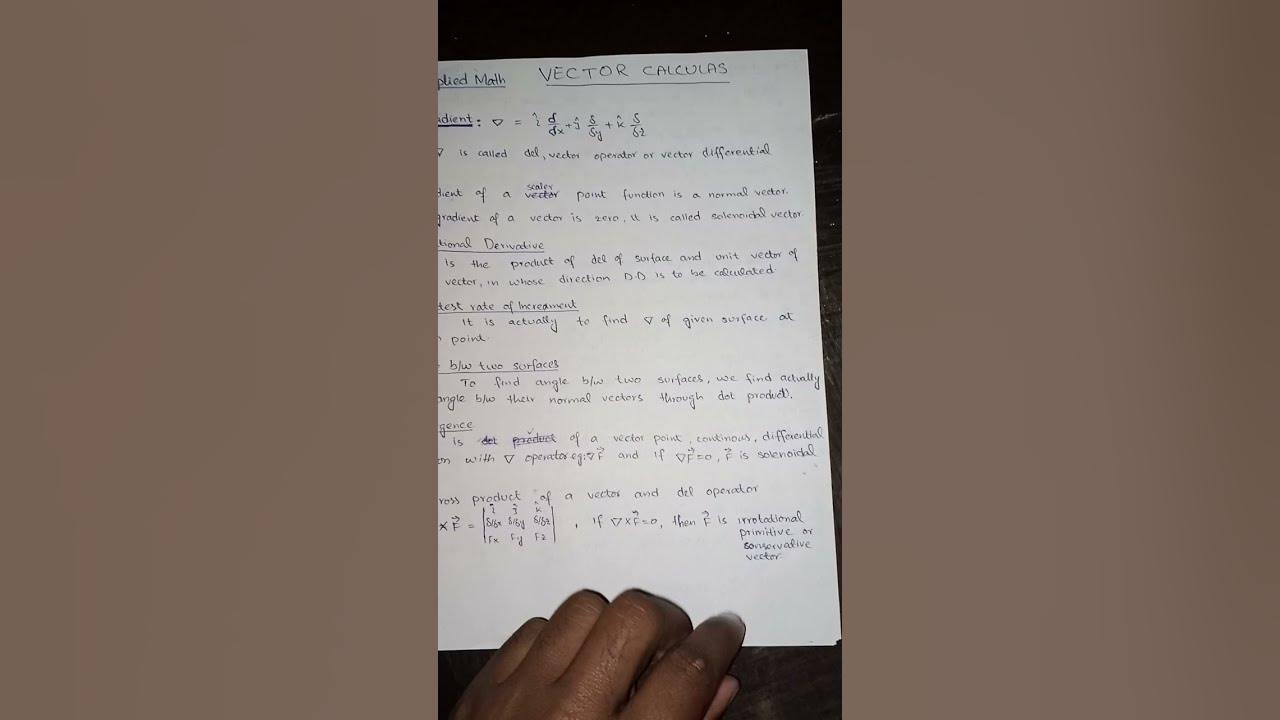 plied Math VECTOR CALCULAS
adient: ∇ = î d/dx + ĵ δ/δy + k̂ δ/δz
∇ is called del, vector operator or vector differential
dient of a scaler vector point function is a normal vector.
gradient of a vector is zero, it is called solenoidal vector.
tional Derivative
is the product of del of surface and unit vector of
vector, in whose direction D.D is to be calculated.
test rate of Increament
It is actually to find ∇ of given surface at
point.
b/w two surfaces
To find angle b/w two surfaces, we find actually
angle b/w their normal vectors through dot product.
gence
is dot product of a vector point, continous, differential
on with ∇ operator eg: ∇F⃗ and if ∇F⃗=0, F⃗ is solenoidal
ross product of a vector and del operator
×F⃗ = | î ĵ k̂ |
| δ/δx δ/δy δ/δz | , if ∇×F⃗=0, then F⃗ is irrotational
| Fx Fy Fz | primitive or
conservative
vector.